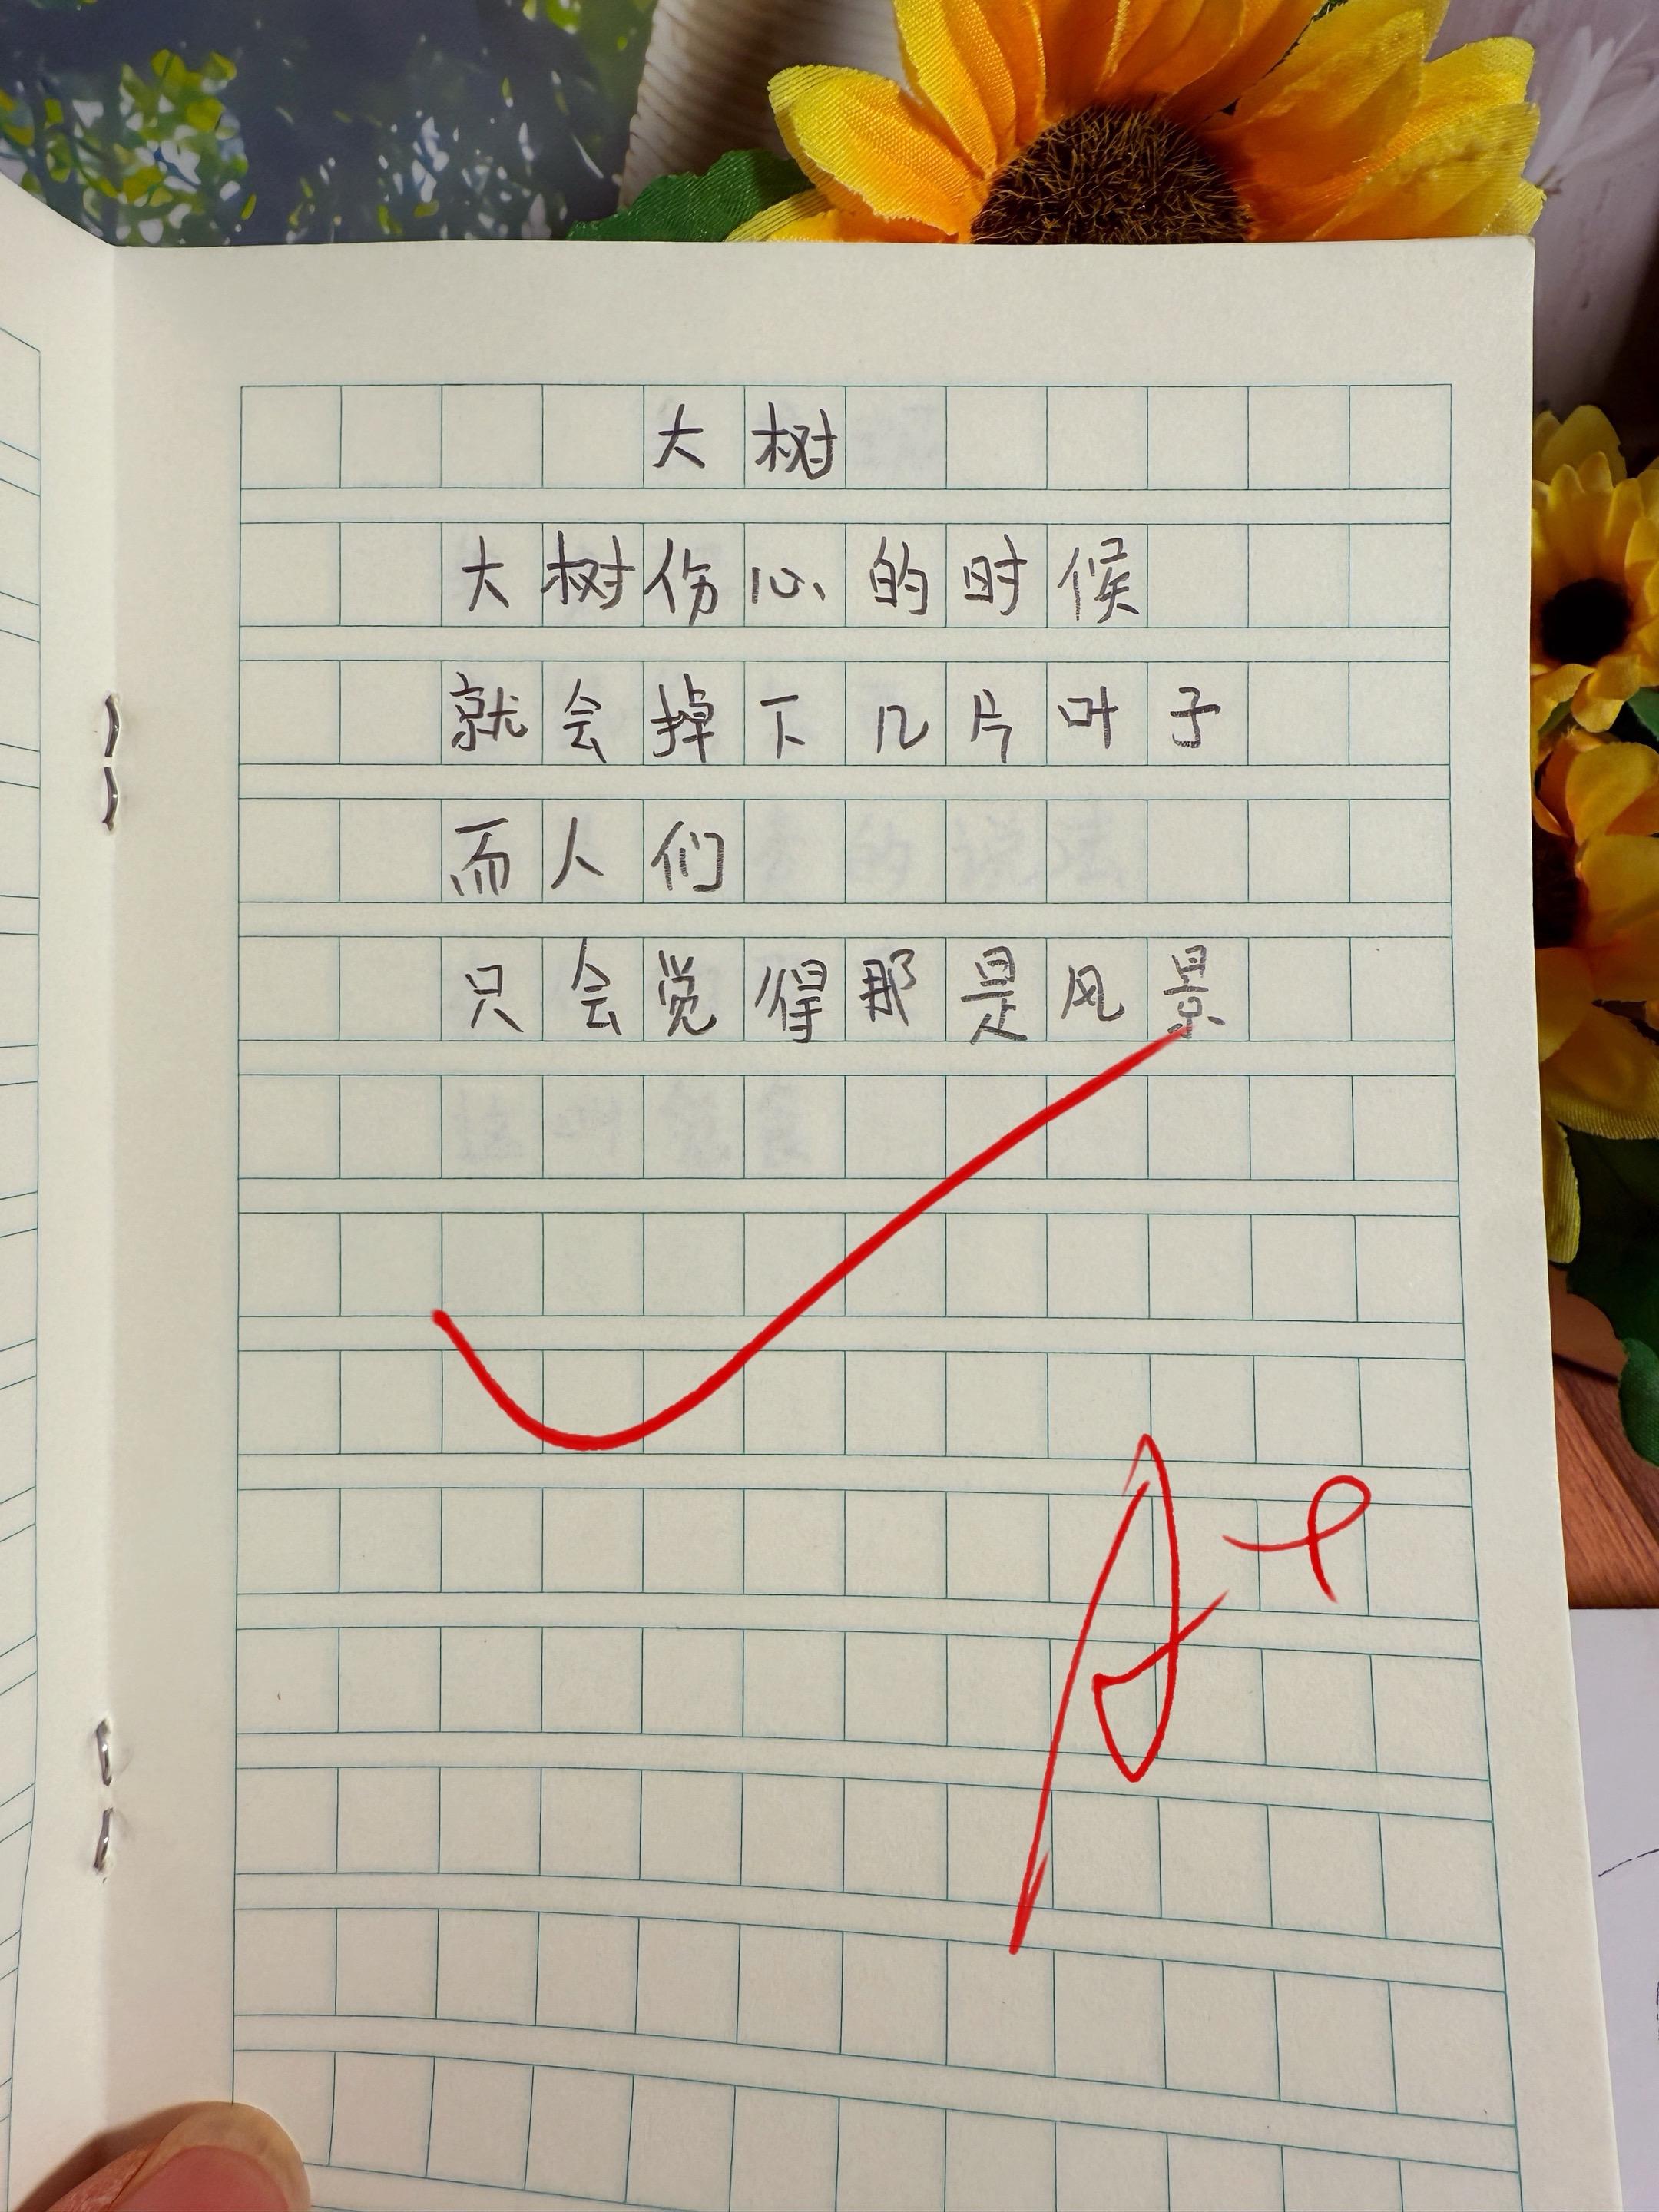 大树
大树伤心的时候
就会掉下几片叶子
而人们
只会觉得那是风景
A+